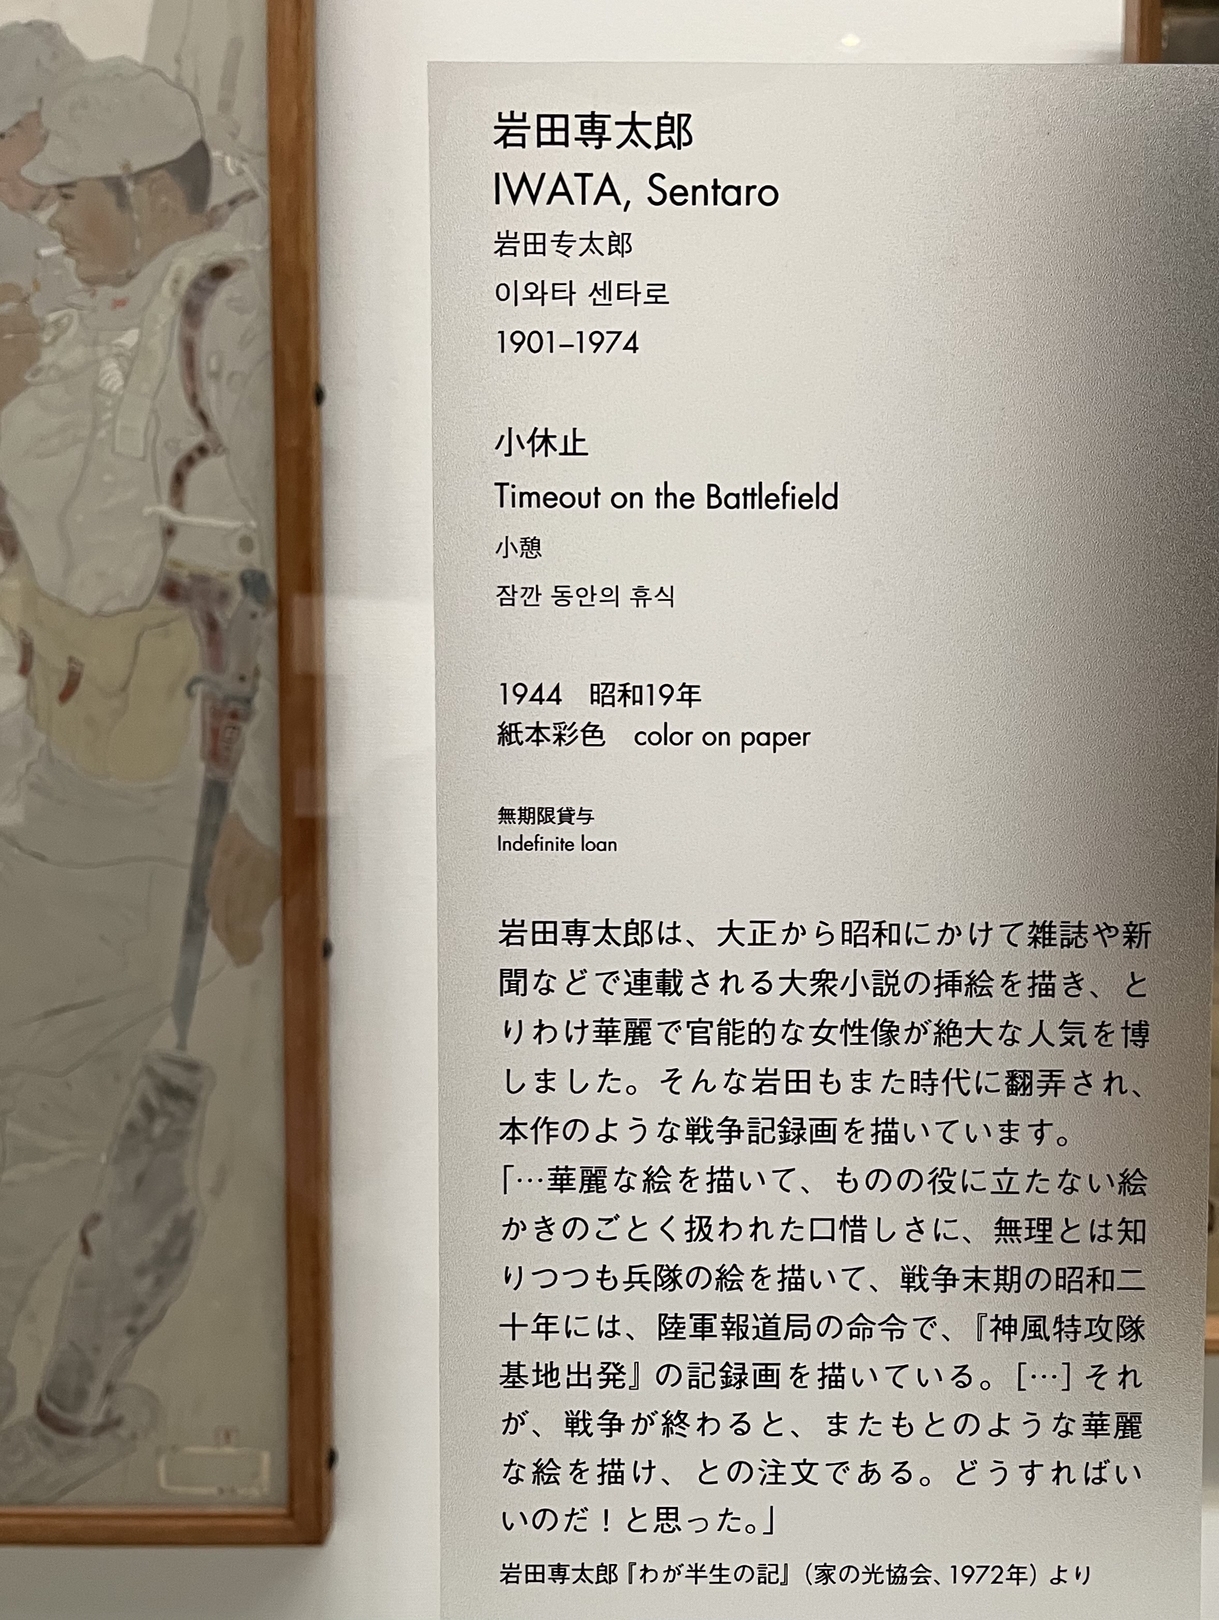 岩田専太郎
IWATA, Sentaro
岩田专太郎
이와타 센타로
1901–1974
小休止
Timeout on the Battlefield
小憩
잠깐 동안의 휴식
1944　昭和19年
紙本彩色　color on paper
無期限貸与
Indefinite loan
岩田専太郎は、大正から昭和にかけて雑誌や新
聞などで連載される大衆小説の挿絵を描き、と
りわけ華麗で官能的な女性像が絶大な人気を博
しました。そんな岩田もまた時代に翻弄され、
本作のような戦争記録画を描いています。
「…華麗な絵を描いて、ものの役に立たない絵
かきのごとく扱われた口惜しさに、無理とは知
りつつも兵隊の絵を描いて、戦争末期の昭和二
十年には、陸軍報道局の命令で、『神風特攻隊
基地出発』の記録画を描いている。［…］それ
が、戦争が終わると、またもとのような華麗
な絵を描け、との注文である。どうすればい
いのだ！と思った。」
岩田専太郎『わが半生の記』（家の光協会、1972年）より